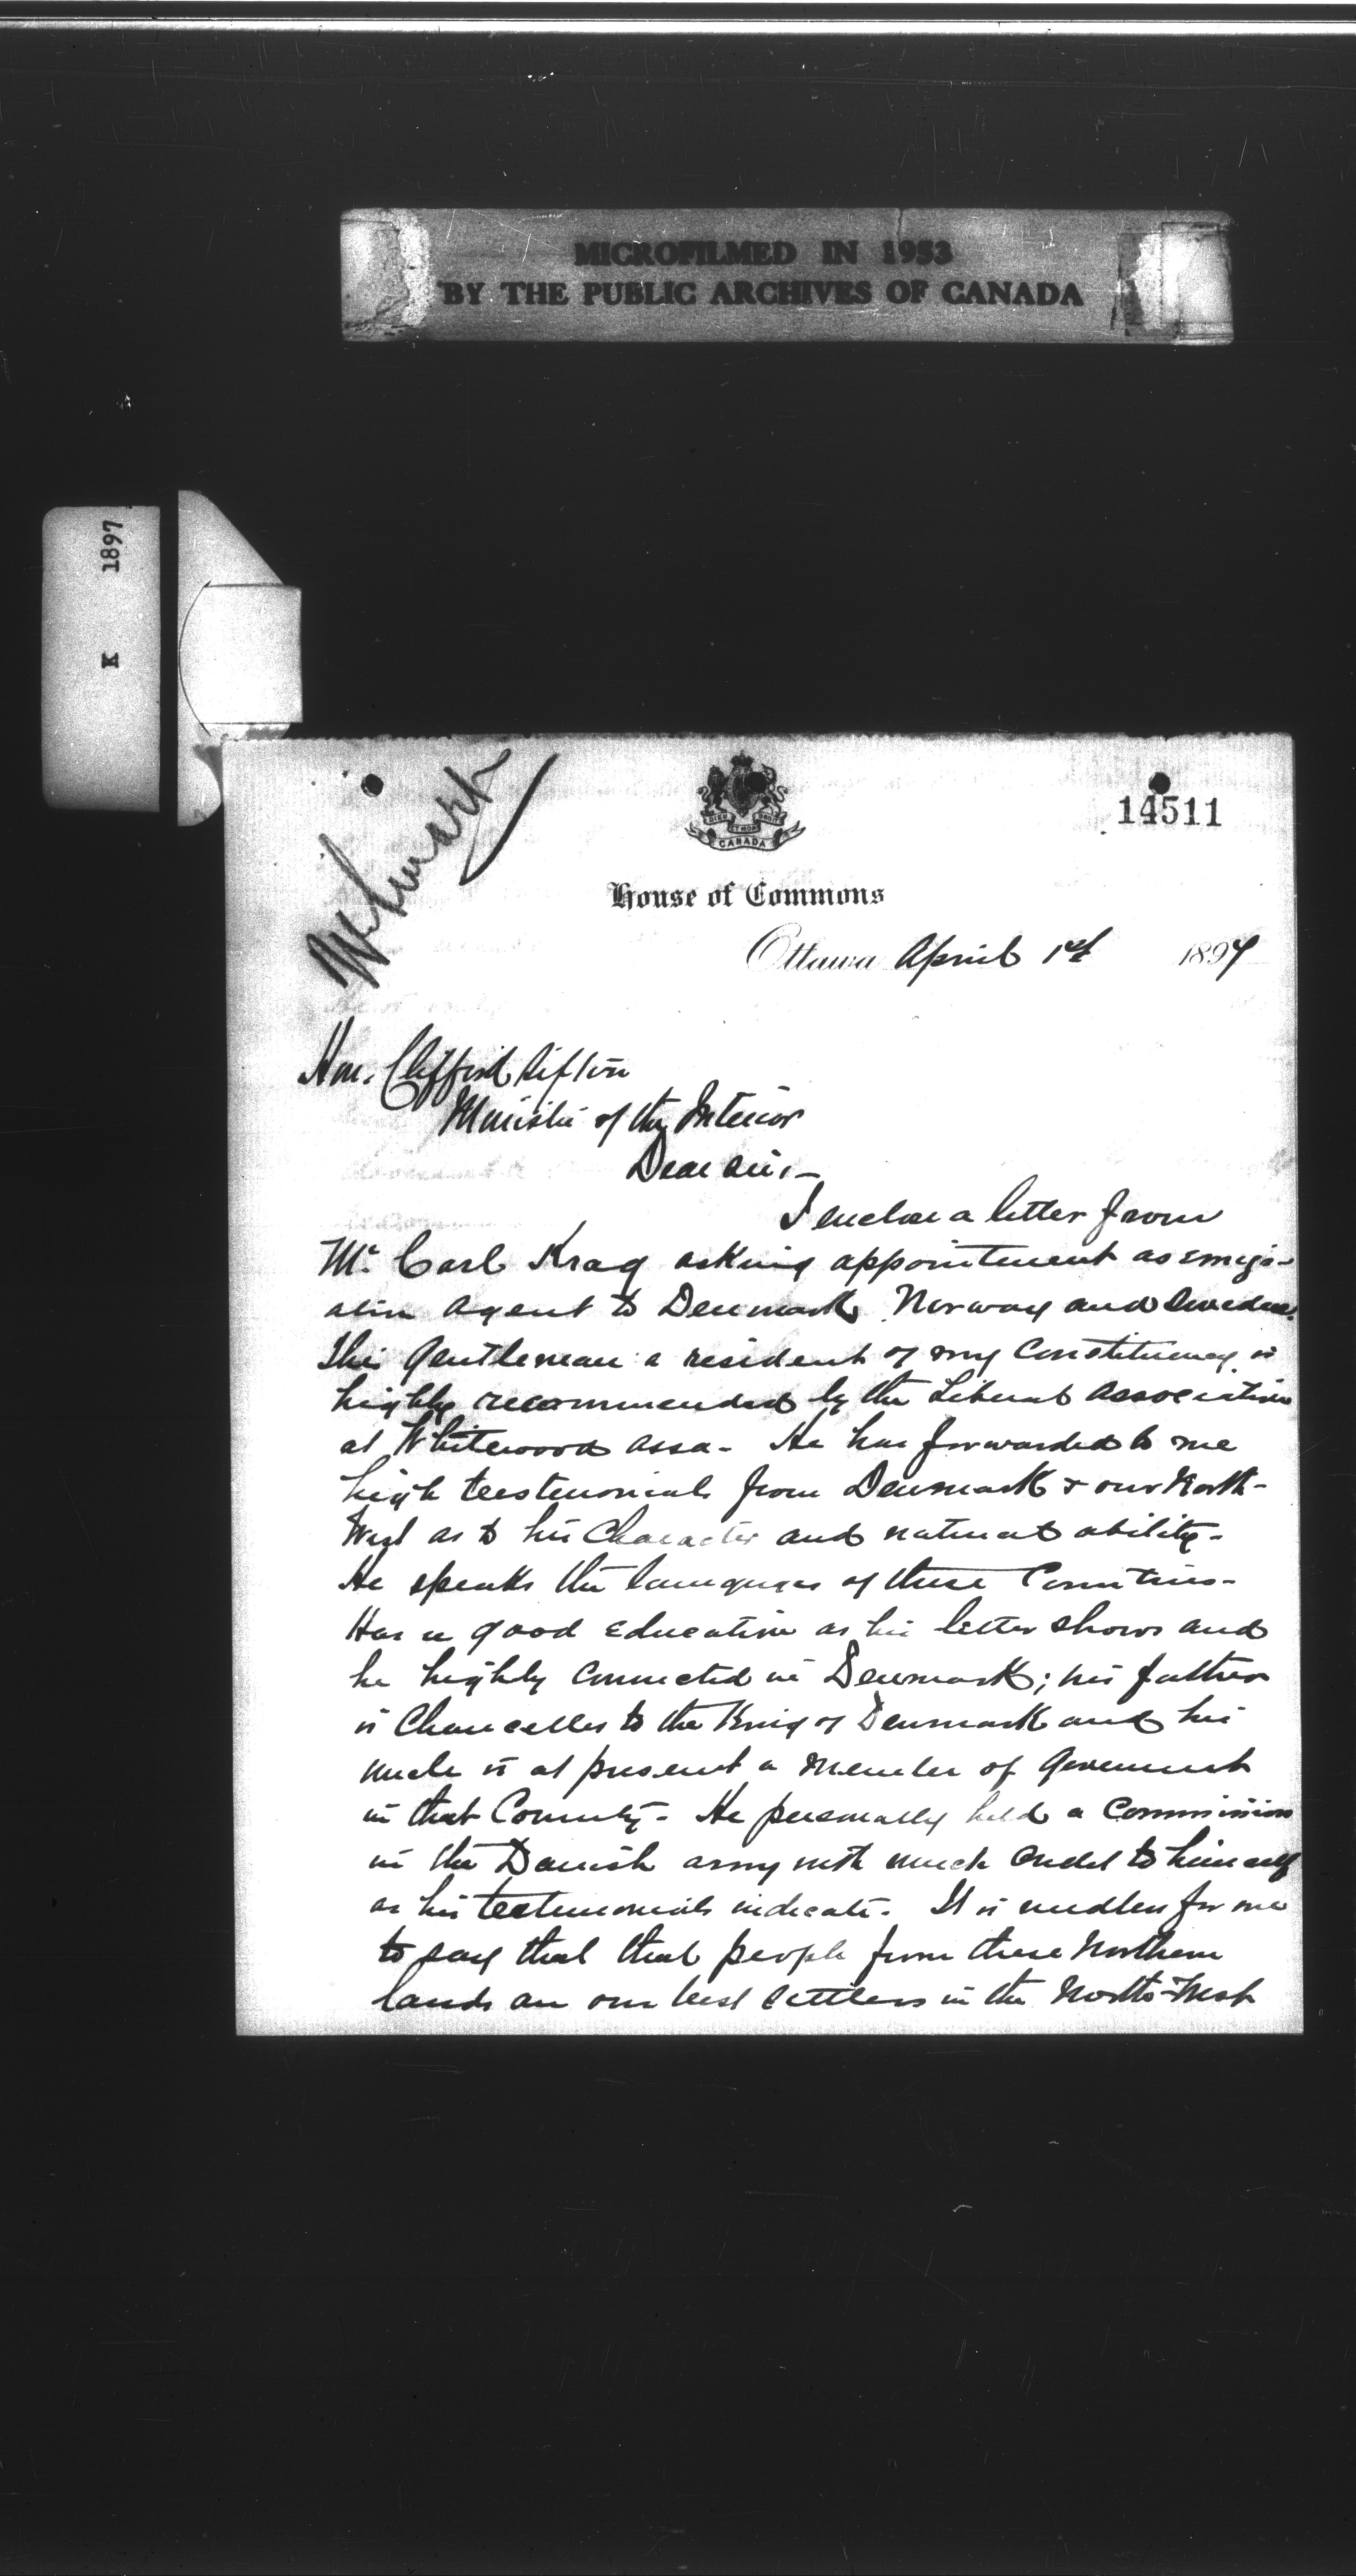 MICROFILMED IN 1953
BY THE PUBLIC ARCHIVES OF CANADA
K 1897
14511
DIEU ET MON DROIT
CANADA
House of Commons
Ottawa April 1st 1897
Hon. Clifford Sifton
Minister of the Interior
Dear Sir,—
I enclose a letter from
Mr. Carl Krag asking appointment as emigr-
ation Agent to Denmark, Norway and Sweden.
This Gentleman a resident of my Constituency is
highly recommended by the Liberal Association
at Whitewood Assa- He has forwarded to me
high testimonials from Denmark & our North-
West as to his Character and natural ability-
He speaks the languages of these Countries-
Has a good education as his letter shows and
he highly connected in Denmark; his father
is Chancellor to the King of Denmark and his
uncle is at present a member of Government
in that Country- He personally held a Commission
in the Danish army with much credit to himself
as his testimonials indicate- It is needless for me
to say that that people from these Northern
lands are our best settlers in the North-West